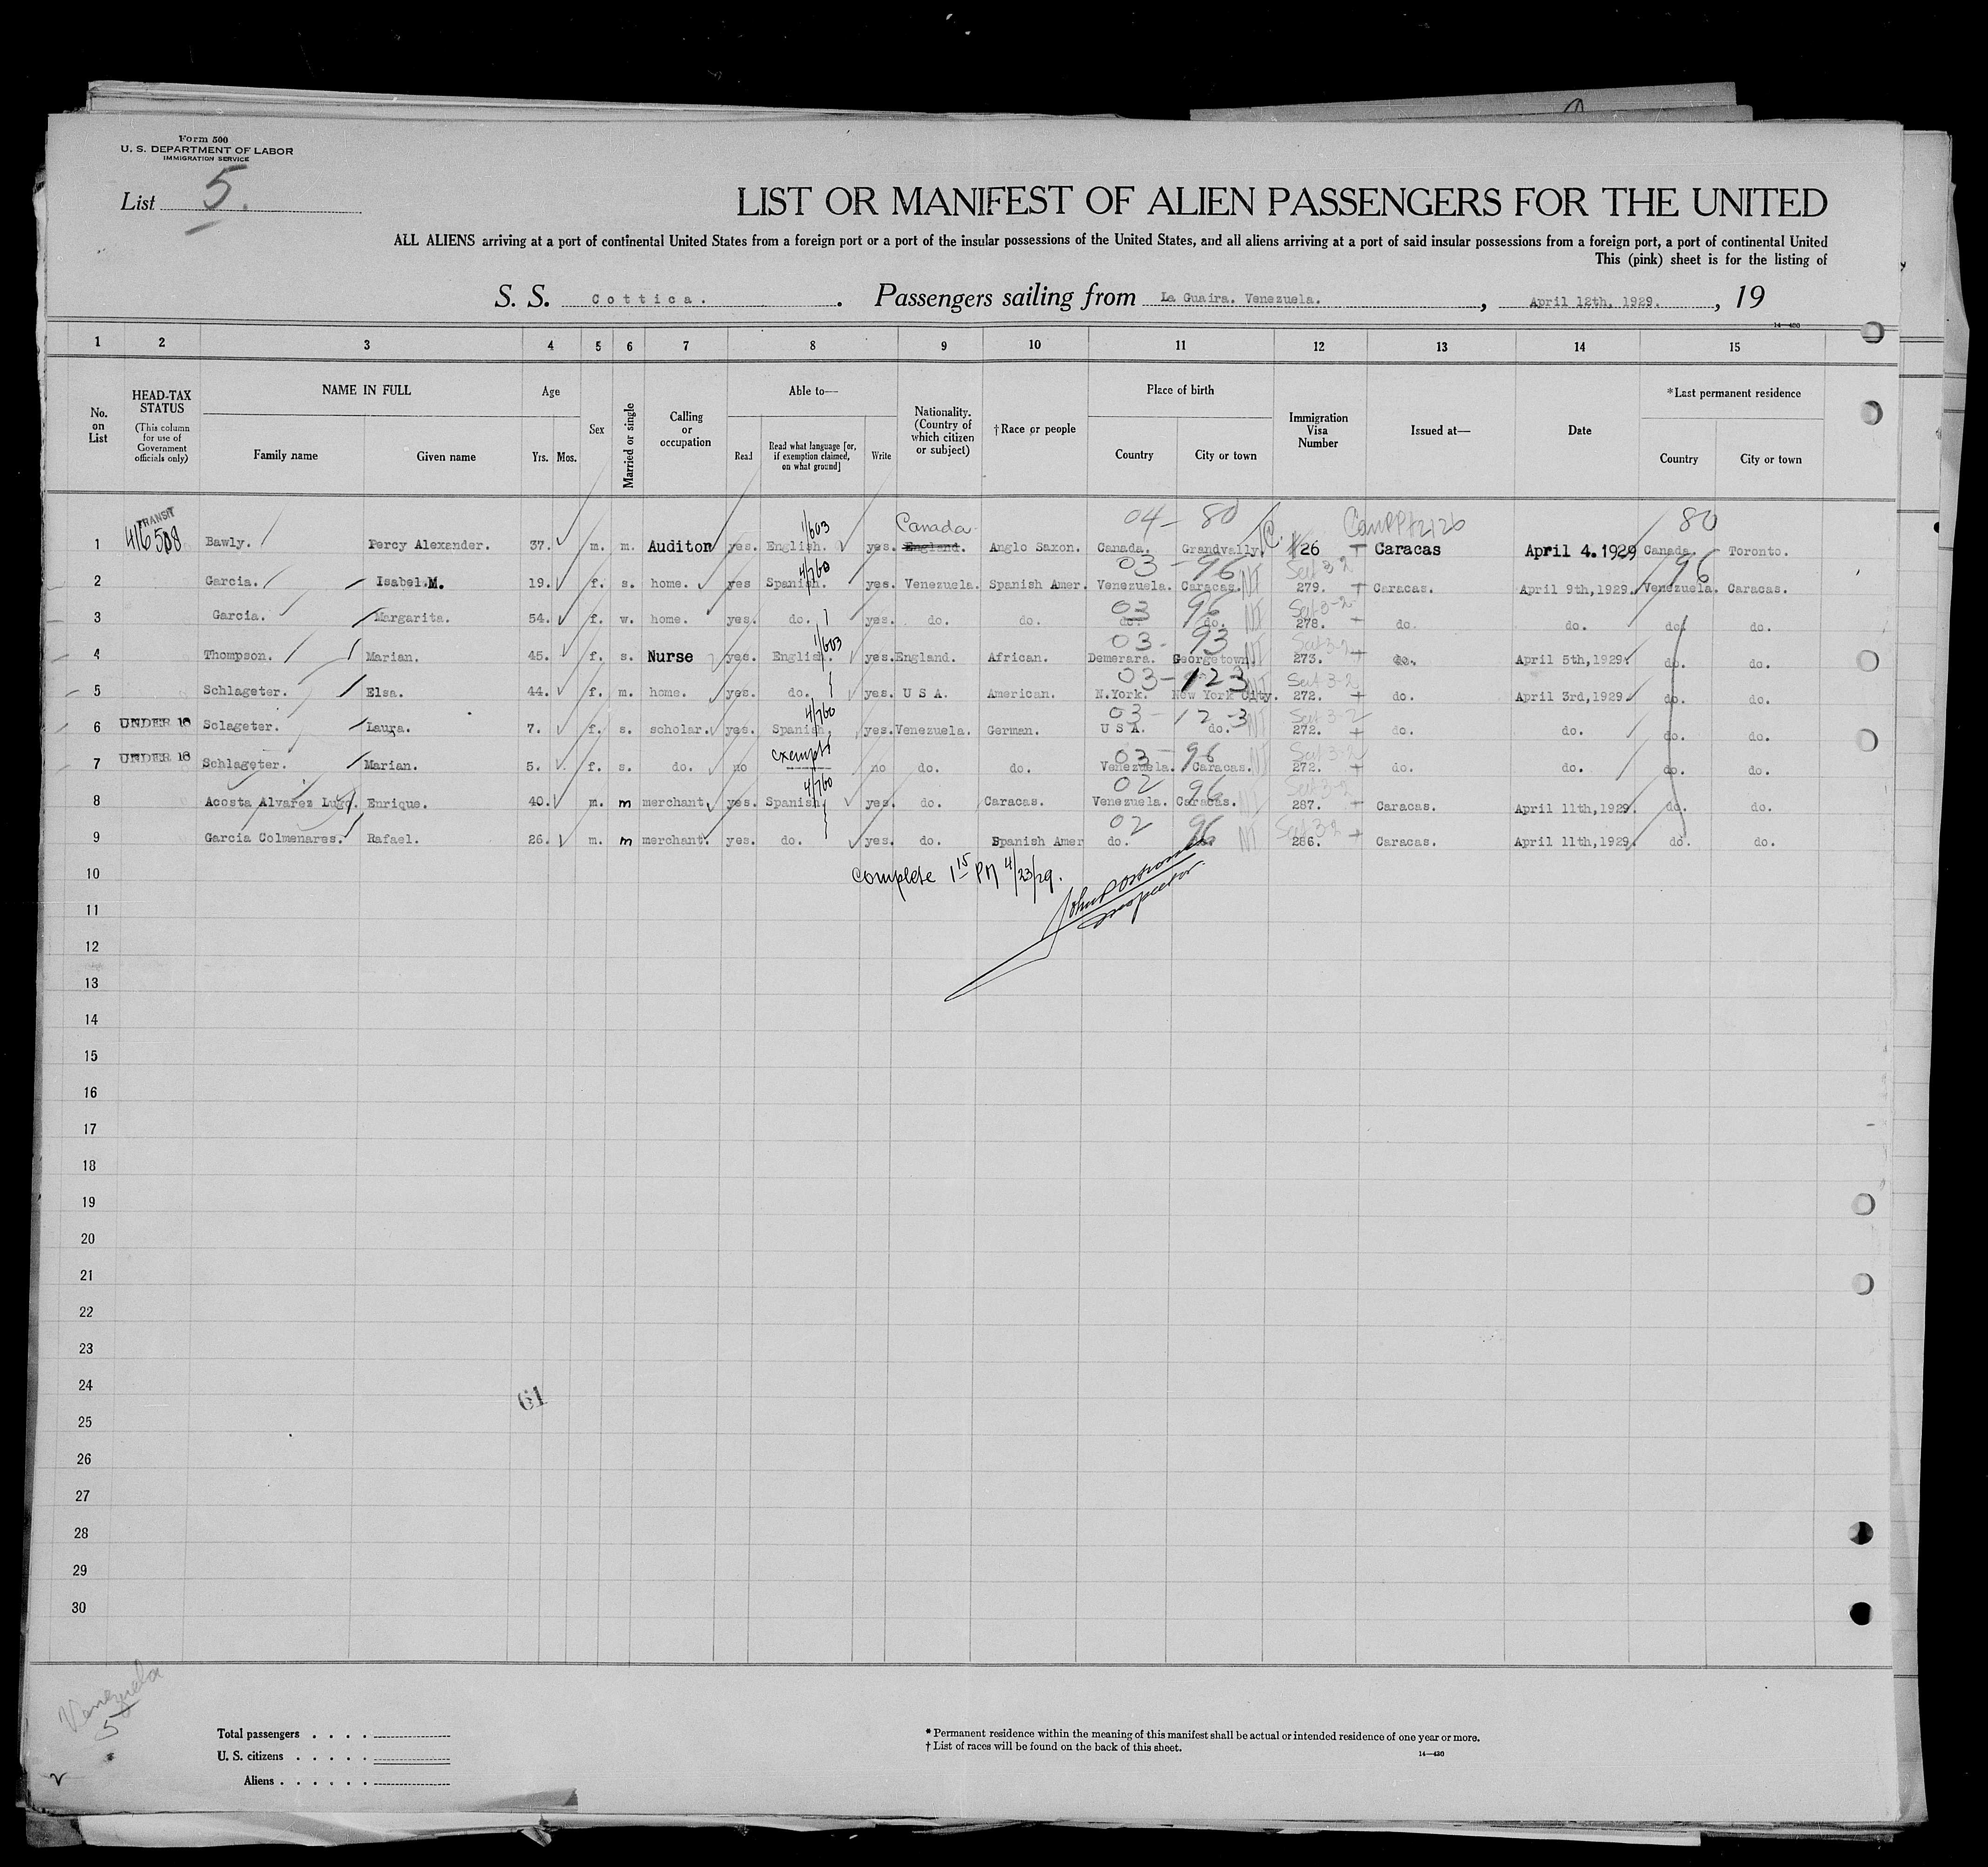 Form 500
U. S. DEPARTMENT OF LABOR
IMMIGRATION SERVICE
List 5.
LIST OR MANIFEST OF ALIEN PASSENGERS FOR THE UNITED
ALL ALIENS arriving at a port of continental United States from a foreign port or a port of the insular possessions of the United States, and all aliens arriving at a port of said insular possessions from a foreign port, a port of continental United
This (pink) sheet is for the listing of
S. S. Cottica. . Passengers sailing from La Guaira. Venezuela. , April 12th, 1929. , 19
14—430
1 2 3 4 5 6 7 8 9 10 11 12 13 14 15
No. on List
HEAD-TAX STATUS
(This column for use of Government officials only)
NAME IN FULL
Family name Given name
Age
Yrs. Mos.
Sex
Married or single
Calling or occupation
Able to—
Read
Read what language [or, if exemption claimed, on what ground]
Write
Nationality. (Country of which citizen or subject)
† Race or people
Place of birth
Country City or town
Immigration Visa Number
Issued at—
Date
*Last permanent residence
Country City or town
TRANSIT 1/603 Canada 04 - 80 80
1 Bawly. Percy Alexander. 37. m. m. Auditor yes. English. yes. England. Anglo Saxon. Canada. Grandvally. 26 Caracas April 4.1929 Canada. Toronto.
4/760 03 - 96 Sect 3-2 96
2 Garcia. Isabel.M. 19. f. s. home. yes Spanish. yes. Venezuela. Spanish Amer. Venezuela. Caracas. NI 279. Caracas. April 9th,1929. Venezuela. Caracas.
03 96 Sect 3-2
3 Garcia. Margarita. 54. f. w. home. yes. do. yes. do. do. do. do. NI 278. do. do. do. do.
1/603 03 - 93 Sect 3-2
4 Thompson. Marian. 45. f. s. Nurse yes. English. yes. England. African. Demerara. Georgetown. NI 273. do. April 5th,1929. do. do.
03 - 123 Sect 3-2
5 Schlageter. Elsa. 44. f. m. home. yes. do. yes. U S A. American. N.York. New York City. 272. do. April 3rd,1929. do. do.
4/760 03 - 12-3 Sect 3-2
6 UNDER 16 Sclageter. Laura. 7. f. s. scholar. yes. Spanish. yes. Venezuela. German. U S A. do. NI 272. do. do. do. do.
exempt 03 - 96 Sect 3-2
7 UNDER 16 Schlageter. Marian. 5. f. s. do. no no do. do. Venezuela. Caracas. NI 272. do. do. do. do.
4/760 02 96 Sect 3-2
8 Acosta Alvarez Lugo. Enrique. 40. m. m merchant. yes. Spanish. yes. do. Caracas. Venezuela. Caracas. NI 287. Caracas. April 11th,1929. do. do.
02 96 Sect 3-2
9 Garcia Colmenares. Rafael. 26. m. m merchant. yes. do. yes. do. Spanish Amer do. do. NI 286. Caracas. April 11th,1929. do. do.
10 Complete 1 15 PM 4/23/29.
Inspector
11
12
13
14
15
16
17
18
19
20
21
22
23
24
61
25
26
27
28
29
30
Venezuela
5
Total passengers . . . .
U. S. citizens . . . . .
Aliens . . . . . .
* Permanent residence within the meaning of this manifest shall be actual or intended residence of one year or more.
† List of races will be found on the back of this sheet.
14—430